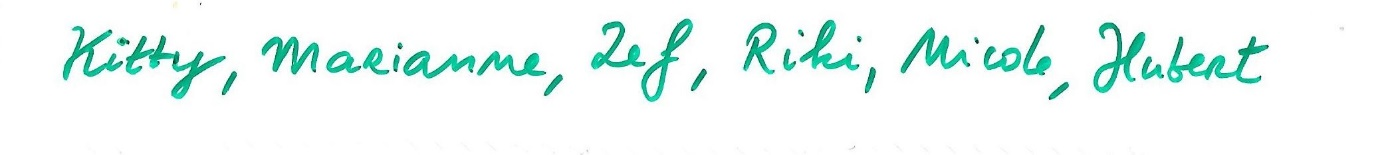 Kitty, Marianne, Zef, Riki, Nicole, Hubert